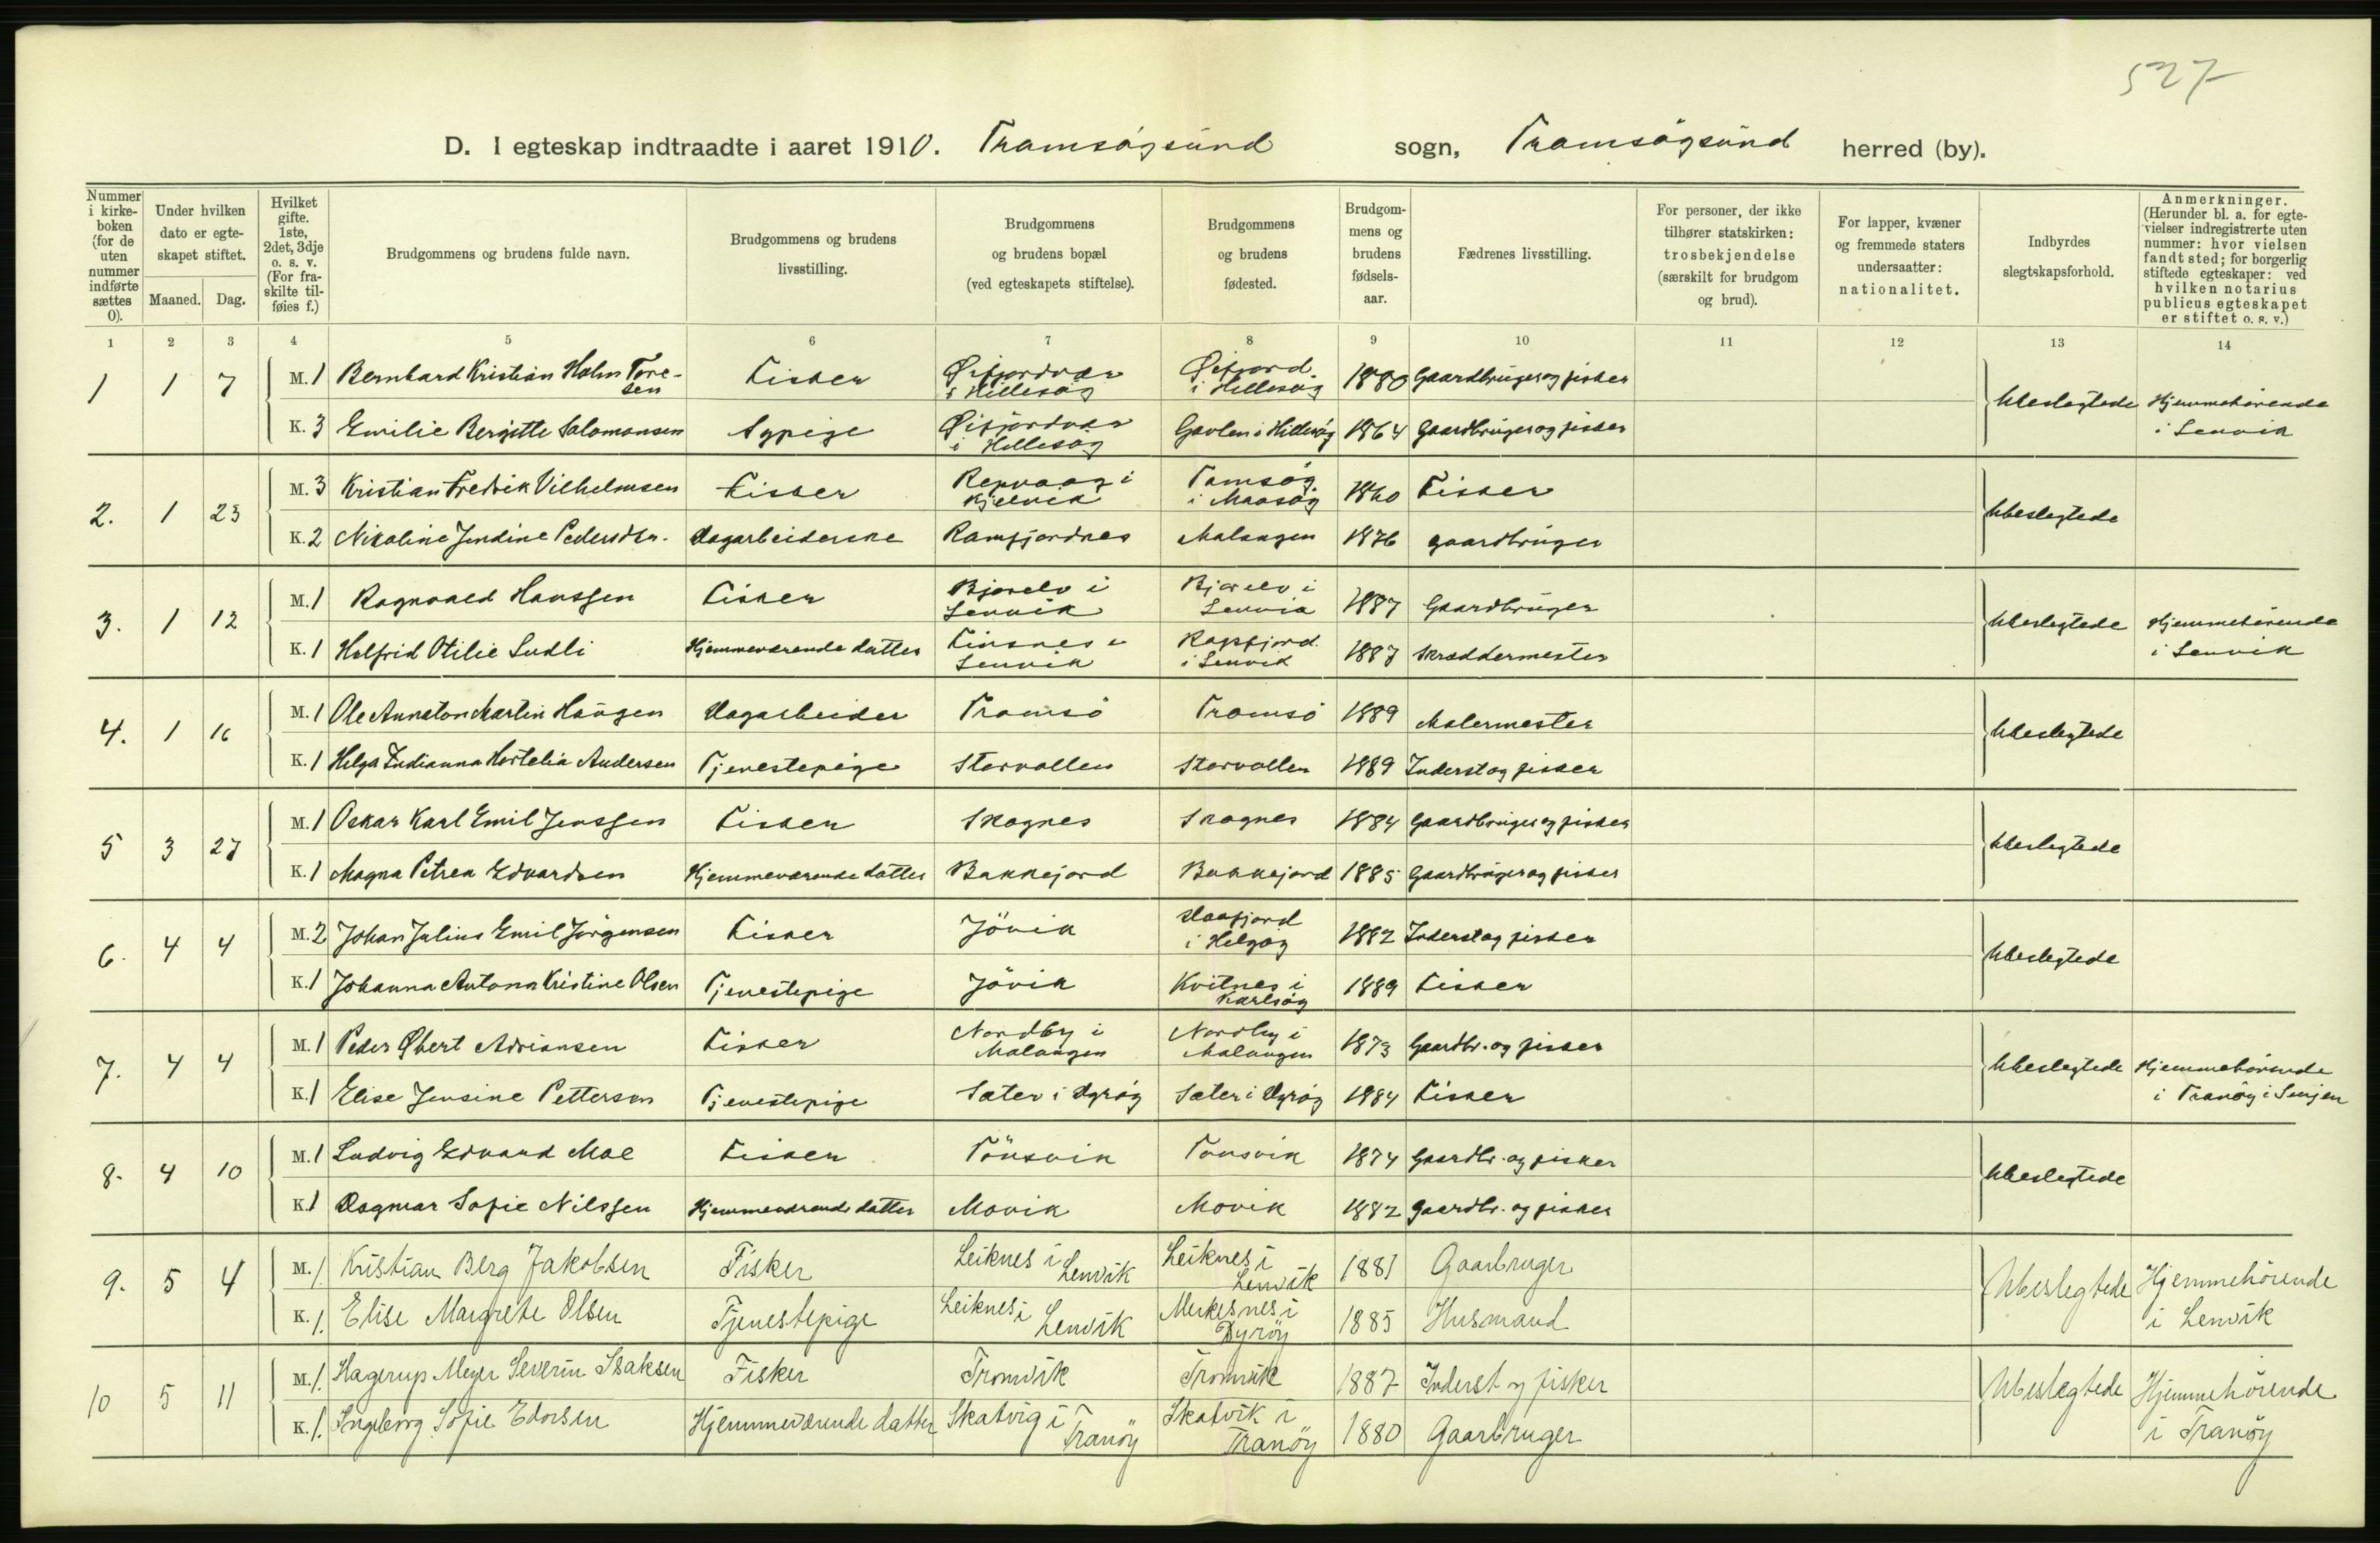 527
D. I egteskap indtraadte i aaret 1910. Tromsöysund sogn, Tromsöysund herred (by).
Nummer i kirkeboken (for de uten nummer indførte sættes 0).
Under hvilken dato er egteskapet stiftet.
Maaned. Dag.
Hvilket gifte. 1ste, 2det, 3dje o. s. v. (For fraskilte tilføies f.)
Brudgommens og brudens fulde navn.
Brudgommens og brudens livsstilling.
Brudgommens og brudens bopæl (ved egteskapets stiftelse).
Brudgommens og brudens fødested.
Brudgommens og brudens fødselsaar.
Fædrenes livsstilling.
For personer, der ikke tilhører statskirken: trosbekjendelse (særskilt for brudgom og brud).
For lapper, kvæner og fremmede staters undersaatter: nationalitet.
Indbyrdes slegtskapsforhold.
Anmerkninger. (Herunder bl. a. for egtevielser indregistrerte uten nummer: hvor vielsen fandt sted; for borgerlig stiftede egteskaper: ved hvilken notarius publicus egteskapet er stiftet o. s. v.)
1 2 3 4 5 6 7 8 9 10 11 12 13 14
1 1 7 M. 1 Bernhard Kristian Holm Toresen Fisker Øifjordvær i Hillesöy Øifjord i Hillesöy 1880 Gaardbruger og fisker Ubeslegtede Hjemmehörende i Lenvik
K. 3 Emilie Bergitte Salomonsen Sypige Øifjordvær i Hillesöy Gavlen i Hillesöy 1864 Gaardbruger og fisker
2. 1 23 M. 3 Kristian Fredrik Vilhelmsen Fisker Repvaag i Kjelvik Tamsöy i Maasöy 1860 Fisker Ubeslegtede
K. 2 Nikoline Jendine Pedersdtr. Dagarbeiderske Ramfjordnes Malangen 1876 gaardbruger
3. 1 12 M. 1 Ragnvald Hanssen Fisker Bjorelv i Lenvik Bjorelv i Lenvik 1887 Gaardbruger Ubeslegtede Hjemmehörende i Lenvik
K. 1 Halfrid Otilie Sudli Hjemmeværende datter Finsnes i Lenvik Rossfjord i Lenvik 1887 Skræddermester
4. 1 16 M. 1 Ole Annaton Martin Haugen Dagarbeider Tromsö Tromsö 1889 Malermester Ubeslegtede
K. 1 Helga Indianna Hortelia Andersen Tjenestepige Storvollen Storvollen 1889 Inderst og fisker
5 3 27 M. 1 Oskar Karl Emil Jenssen Fisker Skognes Skognes 1884 Gaardbruger og fisker Ubeslegtede
K. 1 Magna Petrea Edvardsen Hjemmeværende datter Bakkejord Bakkejord 1885 Gaardbruger og fisker
6. 4 4 M. 2 Johan Julius Emil Jörgensen Fisker Jövik Daafjord i Helgöy 1882 Inderst og fisker Ubeslegtede
K. 1 Johanna Antona Kristine Olsen Tjenestepige Jövik Kvitnes i Karlsöy 1889 Fisker
7. 4 4 M. 1 Peder Øbert Adriansen Fisker Nordby i Malangen Nordby i Malangen 1873 Gaardbr. og fisker Ubeslegtede Hjemmehörende i Tranöy i Senjen
K. 1 Elise Jensine Petterson Tjenestepige Sæter i Dyröy Sæter i Dyröy 1884 Fisker
8. 4 10 M. 1 Ludvig Edvard Moe Fisker Tönsvik Tönsvik 1874 Gaardbr. og fisker Ubeslegtede
K. 1 Dagmar Sofie Nilssen Hjemmeværende datter Movik Movik 1882 Gaardbr. og fisker
9. 5 4 M. 1 Kristian Berg Jakobsen Fisker Leiknes i Lenvik Leiknes i Lenvik 1881 Gaarbruger Ubeslegtede Hjemmehörende i Lenvik
K. 1. Elise Margrete Olsen Tjenestepige Leiknes i Lenvik Merkesnes i Dyröy 1885 Husmand
10 5 11 M. 1. Hagerup Meyer Severin Isaksen Fisker Tromvik Tromvik 1887 Inderst og fisker Ubeslegtede Hjemmehörende i Tranöy
K. 1. Ingeborg Sofie Edorsen Hjemmeværende datter Skatvig i Tranöy Skatvik i Tranöy 1880 Gaarbruger